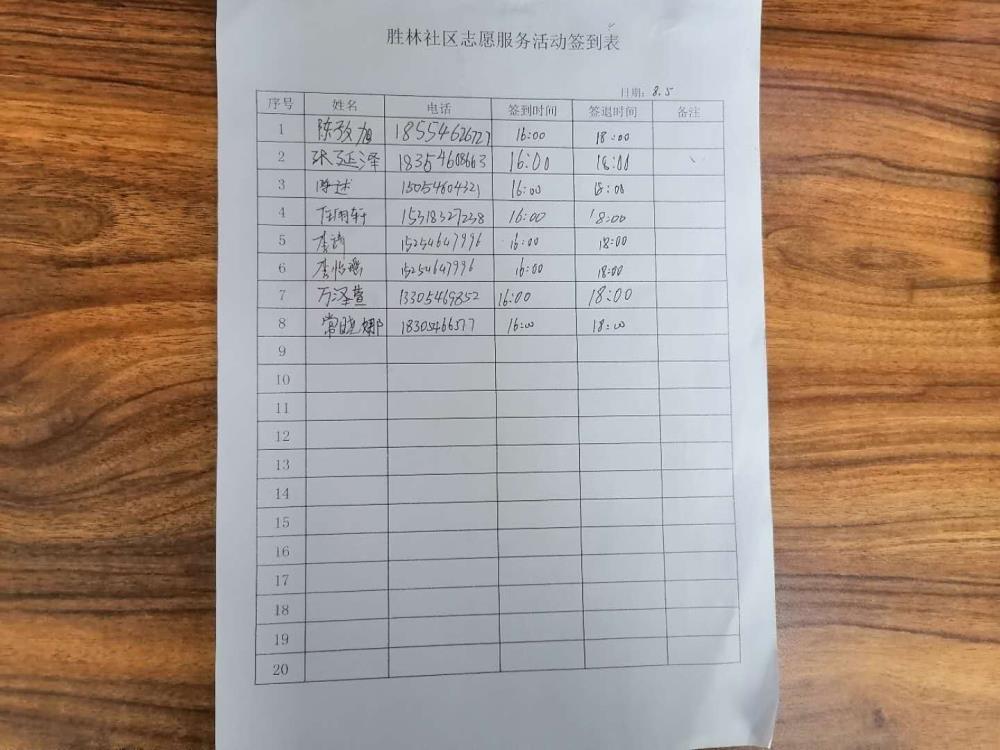 胜林社区志愿服务活动签到表
日期：8.5
序号 姓名 电话 签到时间 签退时间 备注
1 陈孜旭 18554626727 16:00 18:00
2 张延泽 18354608663 16:00 18:00
3 陈述 15054604321 16:00 18:00
4 任雨轩 15318327238 16:00 18:00
5 李诗 15254647996 16:00 18:00
6 李怡璐 15254647996 16:00 18:00
7 万泽萱 13305469852 16:00 18:00
8 常晓娜 18305466577 16:00 18:00
9
10
11
12
13
14
15
16
17
18
19
20